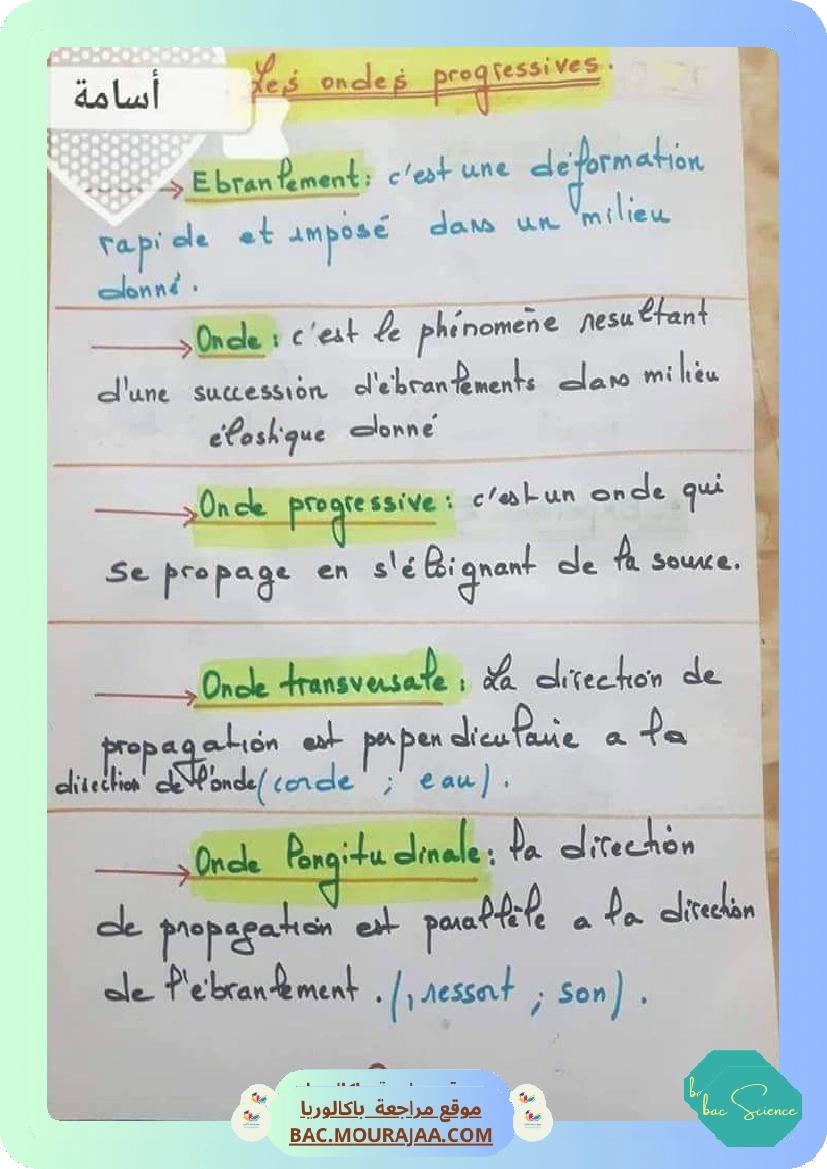 أسامة
Les ondes progressives.
Ebranlement: c'est une déformation
rapide et imposé dans un milieu
donné.
Onde: c'est le phénomène resultant
d'une succession d'ébranlements dans milieu
élastique donné
Onde progressive: c'est un onde qui
se propage en s'éloignant de la source.
Onde transversale: La direction de
propagation est perpendiculaire a la
direction de l'onde (corde ; eau).
Onde longitudinale: la direction
de propagation est parallèle a la direction
de l'ébranlement. (, ressort ; son).
موقع مراجعة باكالوريا
BAC.MOURAJAA.COM
bac Science